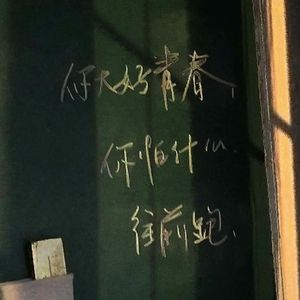 你大好青春，
你怕什么.
往前跑、